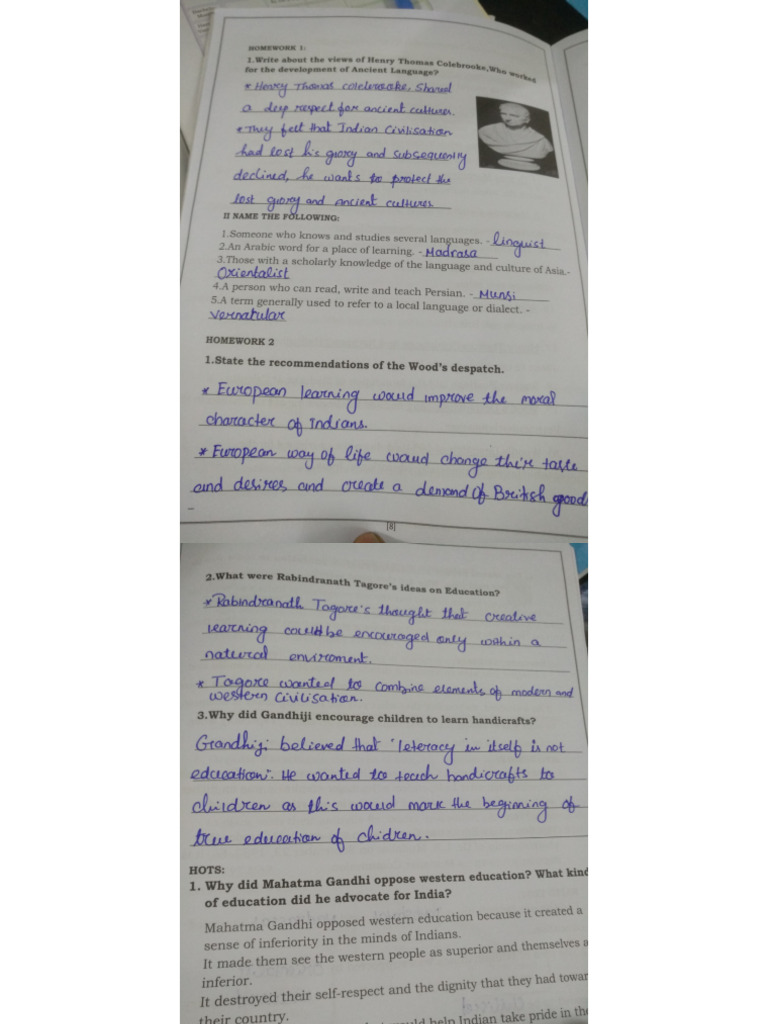 HOMEWORK 1:
1.Write about the views of Henry Thomas Colebrooke,Who worked
for the development of Ancient Language?
* Henry Thomas colebrooke, Shared
a deep respect for ancient cultures.
* They felt that Indian Civilisation
had lost his glory and subsequently
declined, he wants to protect the
lost glory and ancient cultures
II NAME THE FOLLOWING:
1.Someone who knows and studies several languages. - linguist
2.An Arabic word for a place of learning. - Madrasa
3.Those with a scholarly knowledge of the language and culture of Asia.-
Orientalist
4.A person who can read, write and teach Persian. - Munsi
5.A term generally used to refer to a local language or dialect. -
vernatular
HOMEWORK 2
1.State the recommendations of the Wood's despatch.
* European learning would improve the moral
character of Indians.
* European way of life would change their taste
and desires and create a demand of British good
[8]
2.What were Rabindranath Tagore's ideas on Education?
* Rabindranath Tagore's thought that creative
learning could be encouraged only within a
natural enviroment.
* Tagore wanted to combine elements of modern and
western civilisation.
3.Why did Gandhiji encourage children to learn handicrafts?
Grandhiji believed that "leteracy in itself is not
education". He wanted to teach handicrafts to
children as this would mark the beginning of
true education of chidren.
HOTS:
1. Why did Mahatma Gandhi oppose western education? What kind
of education did he advocate for India?
Mahatma Gandhi opposed western education because it created a
sense of inferiority in the minds of Indians.
It made them see the western people as superior and themselves a
inferior.
It destroyed their self-respect and the dignity that they had towar
their country.
would help Indian take pride in the